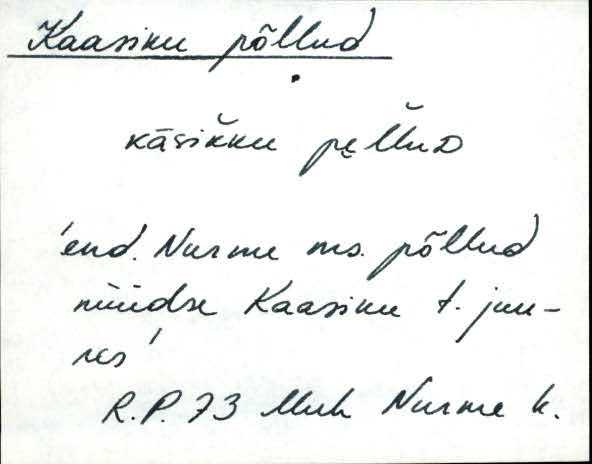 Kaasiku põllud
kāsik̆ku pe̮l̆luᴅ
'end. Nurme ms. põllud
nüüdse Kaasiku t. juu-
res'
R.P. 73 Muh Nurme k.